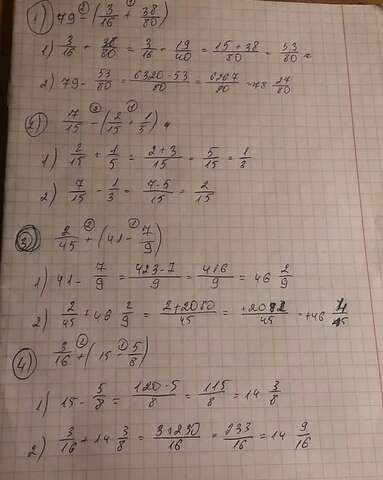 1) 79 - (3/16 + 38/80)
1) 3/16 + 38/80 = 3/16 + 19/40 = 15+38/80 = 53/80
2) 79 - 53/80 = 6320-53/80 = 6267/80 = 78 27/80
2) 7/15 - (2/15 + 1/5)
1) 2/15 + 1/5 = 2+3/15 = 5/15 = 1/3
2) 7/15 - 1/3 = 7-5/15 = 2/15
3) 2/45 + (41 - 7/9)
1) 41 - 7/9 = 423-7/9 = 416/9 = 46 2/9
2) 2/45 + 46 2/9 = 2+2080/45 = 2082/45 = 46
4) 3/16 + (15 - 5/8)
1) 15 - 5/8 = 120-5/8 = 115/8 = 14 3/8
2) 3/16 + 14 3/8 = 3+230/16 = 233/16 = 14 9/16